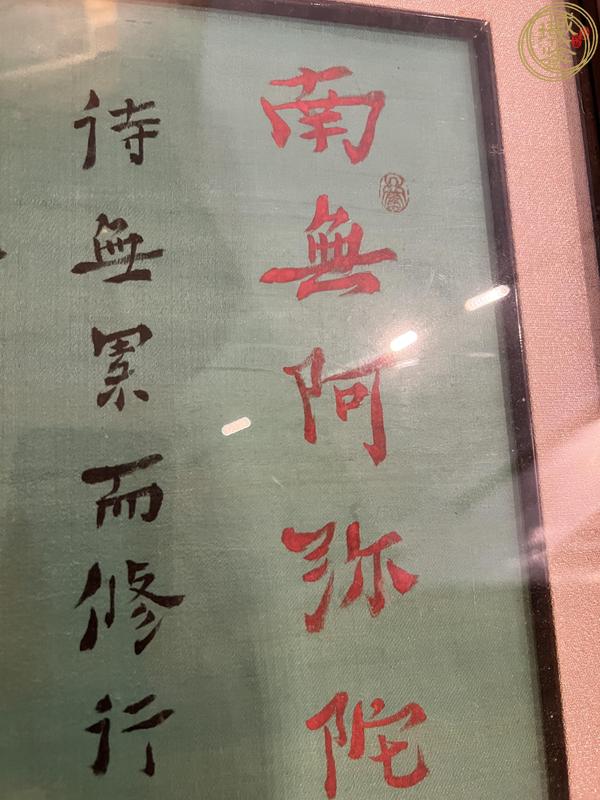 南無阿弥陀
待無累而修行